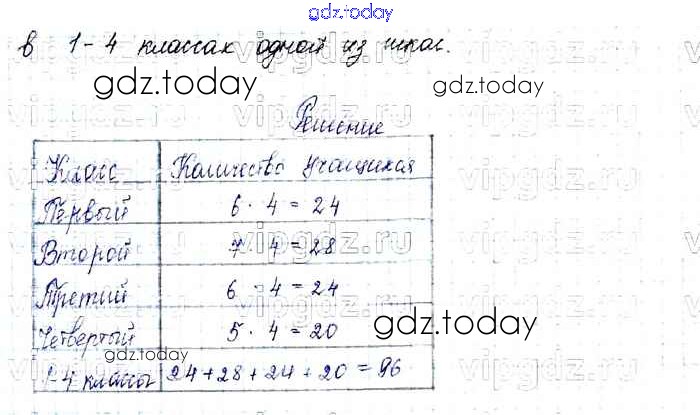 gdz.today
в 1-4 классах одной из школ.
gdz.today gdz.today
Решение
Класс Количество учащихся
Первый 6 · 4 = 24
Второй 7 · 4 = 28
Третий 6 · 4 = 24
Четвертый 5 · 4 = 20
gdz.today
gdz.today
1-4 классы 24+28+24+20=96
vipgdz.ru